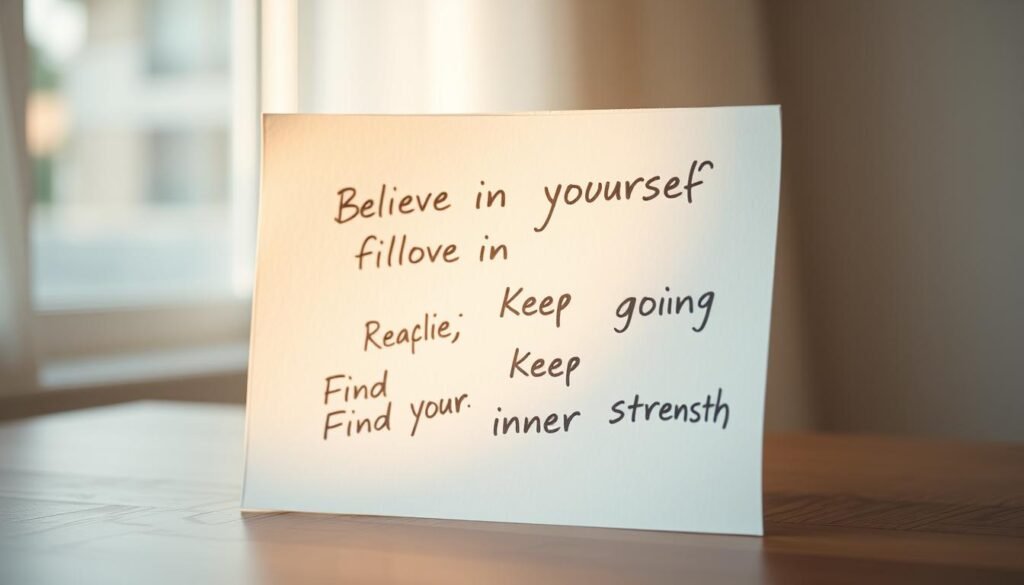 Believe in youursef
fillove in
Keep goiing
Reaflie;
Keep
Find
Find your. inner strensth